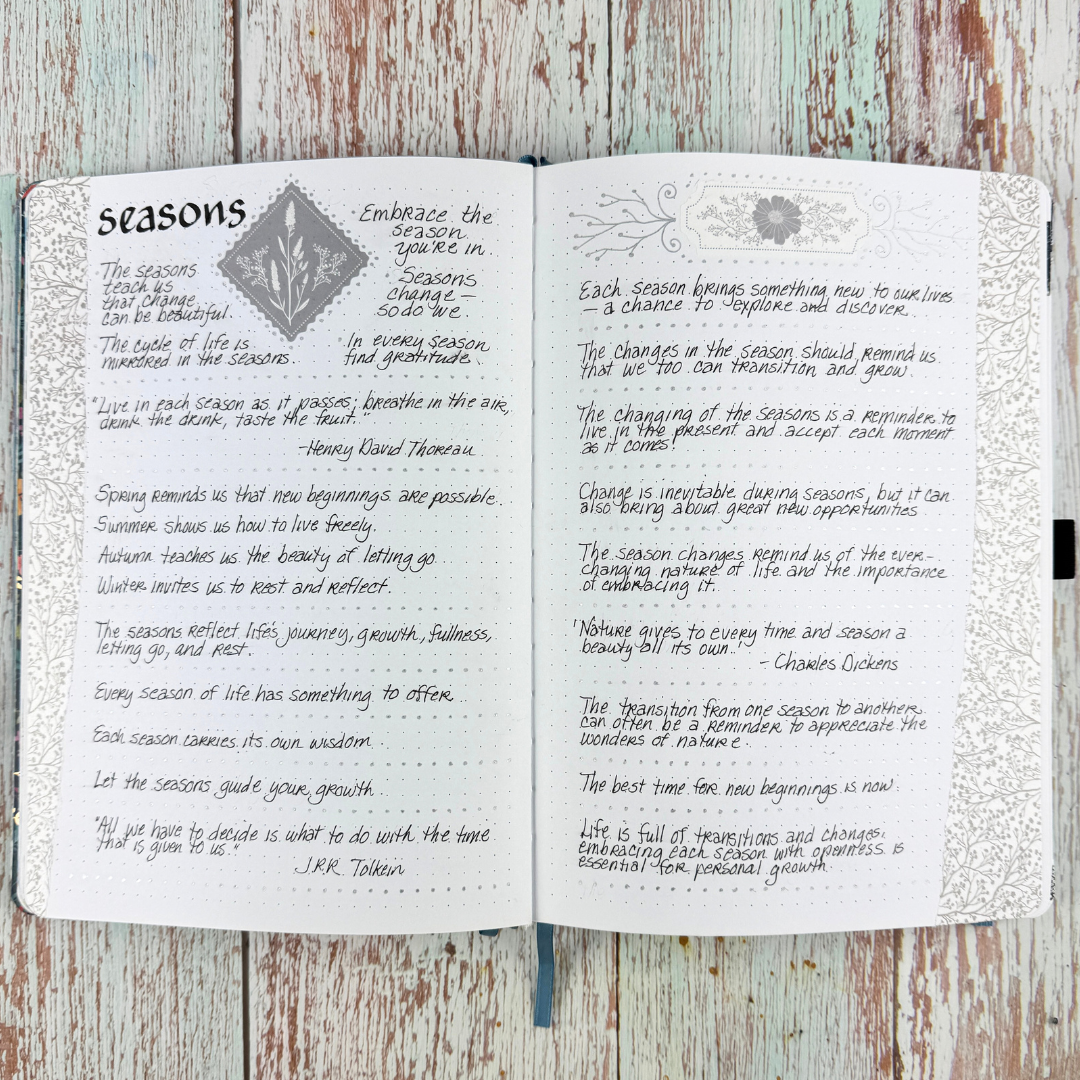 seasons
The seasons
teach us
that change
can be beautiful.
The cycle of life is
mirrored in the seasons.
Embrace the
season
you're in.
Seasons
change –
so do we.
In every season
find gratitude.
"Live in each season as it passes; breathe in the air,
drink the drink, taste the fruit."
-Henry David Thoreau
Spring reminds us that new beginnings are possible.
Summer shows us how to live freely.
Autumn teaches us the beauty of letting go.
Winter invites us to rest and reflect.
The seasons reflect life's journey, growth, fullness,
letting go, and rest.
Every season of life has something to offer.
Each season carries its own wisdom.
Let the seasons guide your growth.
"All we have to decide is what to do with the time
that is given to us."
J.R.R. Tolkein
Each season brings something new to our lives
– a chance to explore and discover.
The changes in the season should remind us
that we too can transition and grow.
The changing of the seasons is a reminder to
live in the present and accept each moment
as it comes!
Change is inevitable during seasons, but it can
also bring about great new opportunities
The season changes remind us of the ever-
changing nature of life and the importance
of embracing it.
'Nature gives to every time and season a
beauty all its own.'
- Charles Dickens
The transition from one season to another
can often be a reminder to appreciate the
wonders of nature.
The best time for new beginnings is now.
Life is full of transitions and changes,
embracing each season with openness is
essential for personal growth.